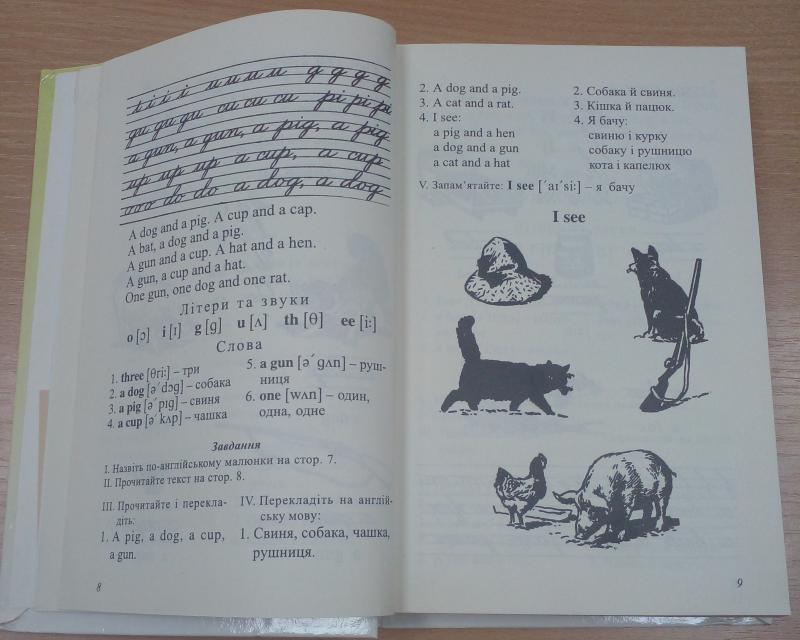 i i i i u u u u g g g g
gu gu gu cu cu cu pi pi pi
a gun, a gun, a pig, a pig
up up up a cup, a cup
ooo do do a dog, a dog
A dog and a pig. A cup and a cap.
A bat, a dog and a pig.
A gun and a cup. A hat and a hen.
A gun, a cup and a hat.
One gun, one dog and one rat.
Літери та звуки
o [ɔ] i [ɪ] g [g] u [ʌ] th [θ] ee [i:]
Слова
1. three [θri:] – три
2. a dog [ə´dɔg] – собака
3. a pig [ə´pɪg] – свиня
4. a cup [ə´kʌp] – чашка
5. a gun [ə´gʌn] – руш-
ниця
6. one [wʌn] – один,
одна, одне
Завдання
I. Назвіть по-англійському малюнки на стор. 7.
II. Прочитайте текст на стор. 8.
III. Прочитайте і перекла-
діть:
1. A pig, a dog, a cup,
a gun.
IV. Перекладіть на англій-
ську мову:
1. Свиня, собака, чашка,
рушниця.
8
2. A dog and a pig.
3. A cat and a rat.
4. I see:
a pig and a hen
a dog and a gun
a cat and a hat
2. Собака й свиня.
3. Кішка й пацюк.
4. Я бачу:
свиню і курку
собаку і рушницю
кота і капелюх
V. Запам’ятайте: I see [´aɪ´si:] – я бачу
I see
9